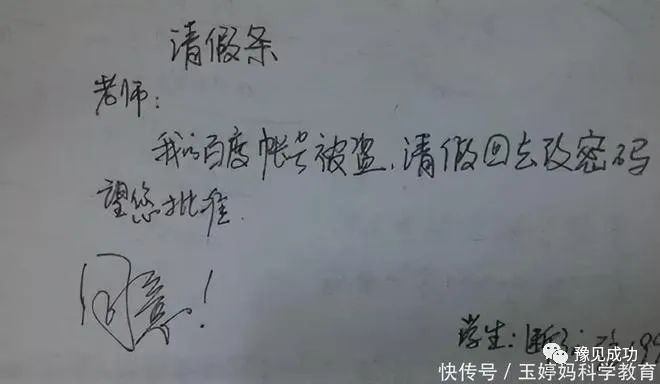 请假条
老师:
我的百度帐号被盗,请假回去改密码
望您批准.
同意!
学生:
豫见成功
快传号/玉婷妈科学教育